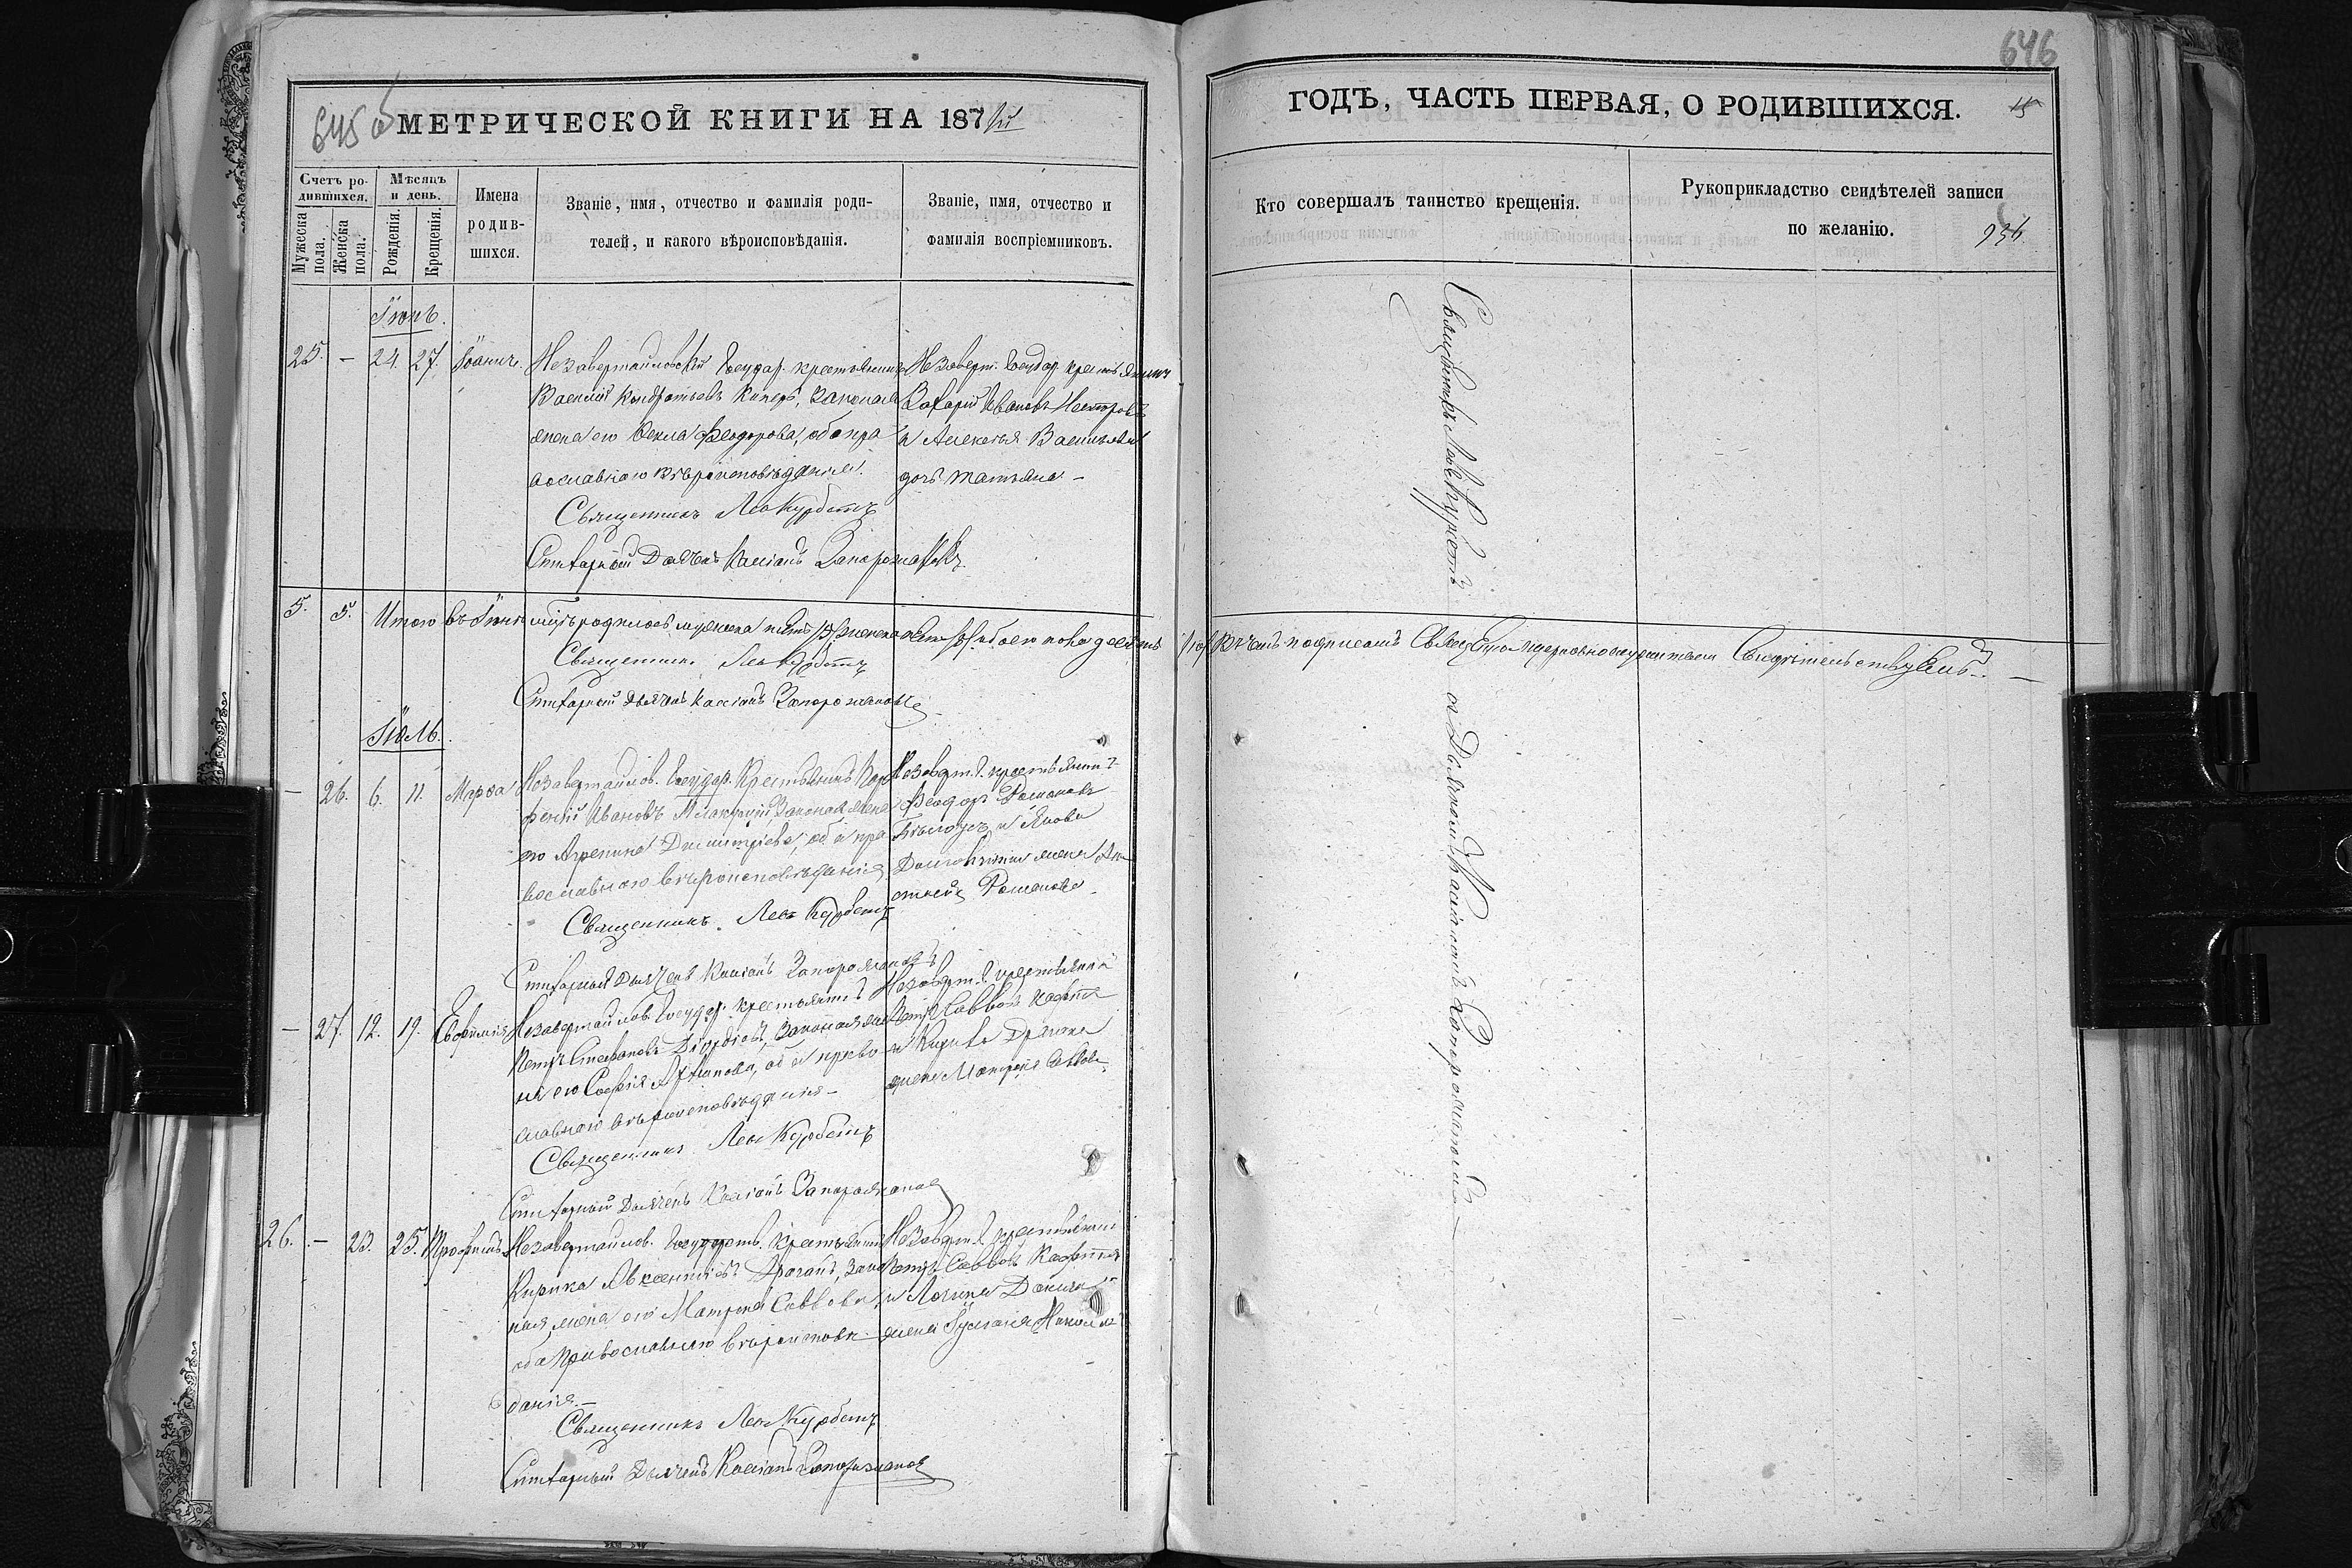 645 об
МЕТРИЧЕСКОЙ КНИГИ НА 187
Счетъ ро-
дившихся.
Мужеска пола.
Женска пола.
Мѣсяцъ
и день.
Рожденія.
Крещенія.
Имена
родив-
шихся.
Званіе, имя, отчество и фамилія роди-
телей, и какого вѣроисповѣданія.
Званіе, имя, отчество и
фамилія воспріемниковъ.
Іюнь.
25. — 24. 27. Іоаннъ.
Незавертайловскій Государ. крестьянинъ
Василій Кондратьевъ Киперъ, законная
жена его Ѳекла Феодорова, оба пра
вославнаго вѣроисповѣданія.
Священникъ Лев Курбетъ
Стихарный Дьячекъ Кассіанъ Запорожановъ
Незаверт. Государ. крестьянинъ
Захарій Ивановъ Несторовъ
и Алексѣя Васильева
дочь Татьяна —
5. 5. Итого въ Іюнѣ мцѣ родилось мужеска пять /5/ женска пять /5/ обоего пола десять
Священникъ Лев Курбетъ
Стихарный дьячекъ Кассіанъ Запорожановъ
Іюль.
— 26. 6. 11. Марѳа
Незавертайлов. Государ. Крестьянинъ Пар
феній Ивановъ законная жена
его Агрепина Димитріева, оба пра
вославнаго вѣроисповѣданія
Священникъ Лев Курбетъ
Стихарный Дьячекъ Кассіанъ Запорожановъ
Незаврт. Г. крестьянинъ
Феодоръ Романовъ
и Якова
жена
Романова
— 27. 12. 19. Евфимія
Незавертайлов. Государ. крестьянинъ
Петръ Стефановъ законная же
на его Софія оба право
славнаго вѣроисповѣданія —
Священникъ Лев Курбетъ
Стихарный Дьячекъ Кассіанъ Запорожановъ
Незаврт. Г. крестьянинъ
Петръ Саввовъ
и Кирика Драгана
жена Матрона Саввова
26. — 23. 25. Трофимъ
Незавертайлов. Государств. Крестьянинъ
Кирика Авксентіевъ Драганъ, закон
ная жена его Матрона Саввова,
оба Православнаго вѣроисповѣ
данія. —
Священникъ Лев Курбетъ
Стихарный Дьячекъ Кассіанъ Запорожановъ
Незаврт. Г. крестьянинъ
Петръ Саввовъ
и Логина
жена Іуліанія
646
ГОДЪ, ЧАСТЬ ПЕРВАЯ, О РОДИВШИХСЯ.
15
Кто совершалъ таинство крещенія.
Рукоприкладство свидѣтелей записи
по желанію.
936.
Священникъ Левъ Курбетъ съ Дьячкомъ Кассіаномъ Запорожановымъ —
/10/ въ чемъ подписомъ Священно церковнослужители свидѣтельствуемъ. —